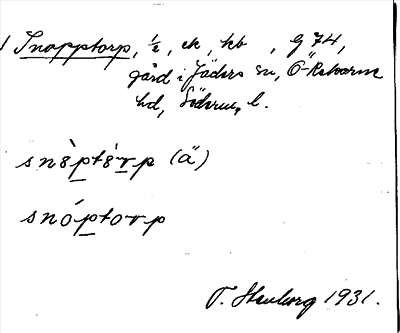 Snopptorp, ½, ek, kb, G 74,
gård i Jäders sn, Ö-Rekarne
hd, Söderm. l.
snòptórp (ä)
snóptorp
T. Stenborg 1931.